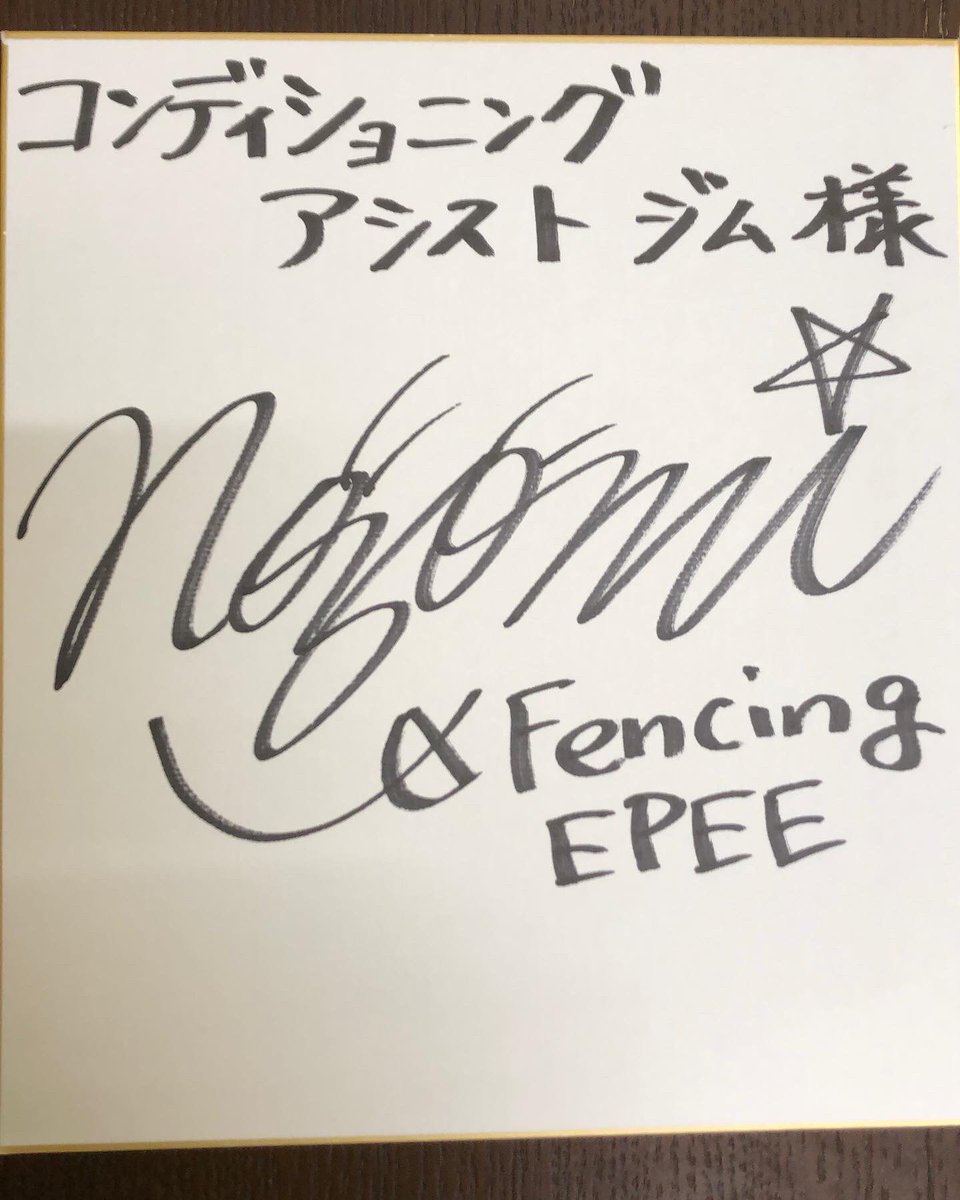 コンディショニング
アシスト ジム様
nozomi
Fencing
EPEE